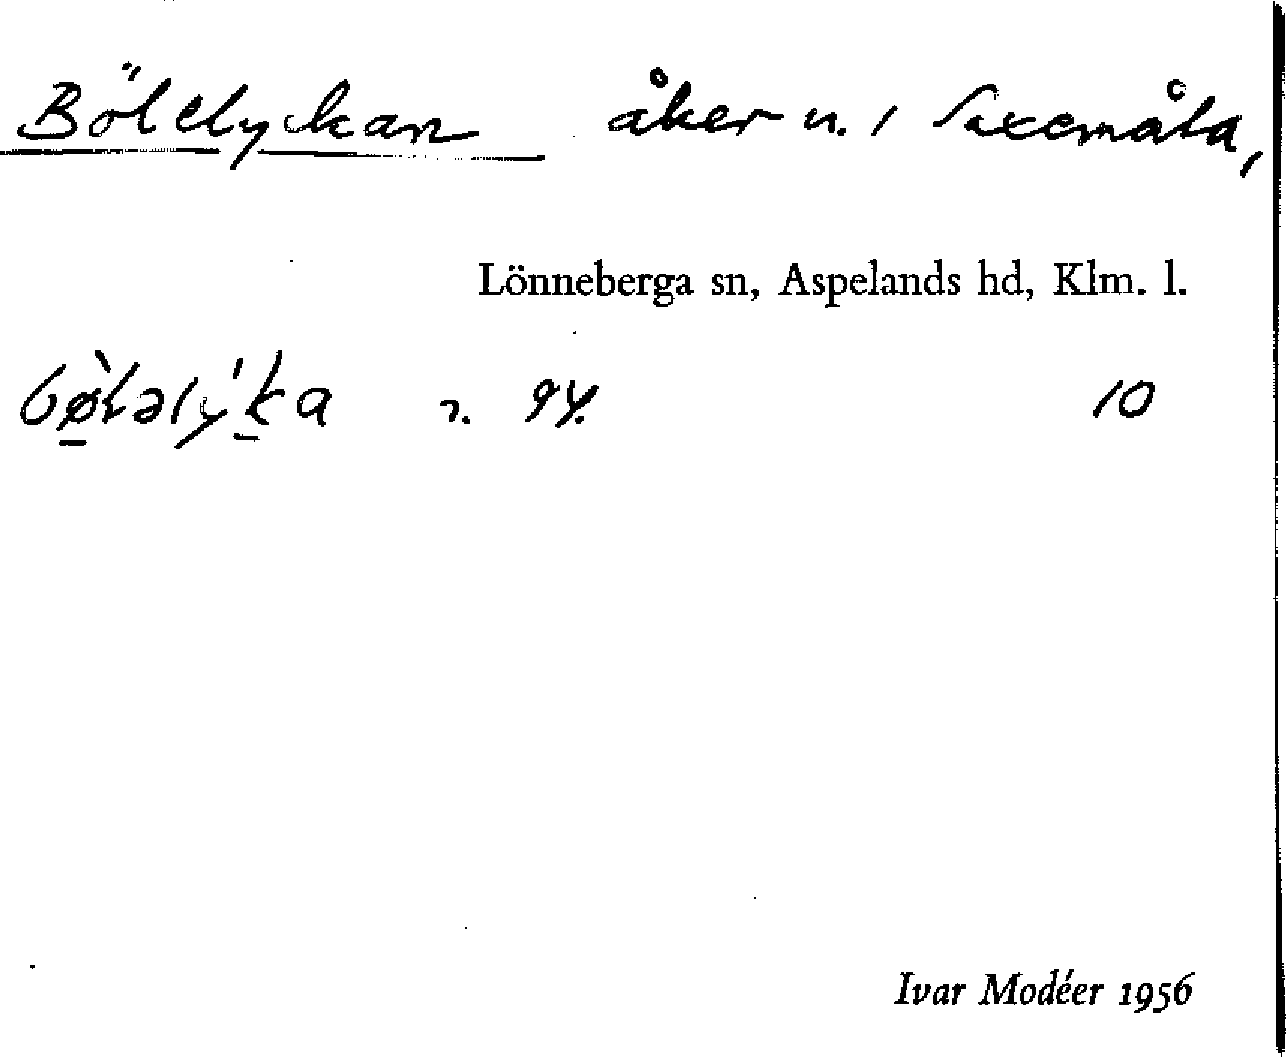 Bölelyckan åker n. i Saxemåla,
Lönneberga sn, Aspelands hd, Klm. l.
n. 94. 10
Ivar Modéer 1956